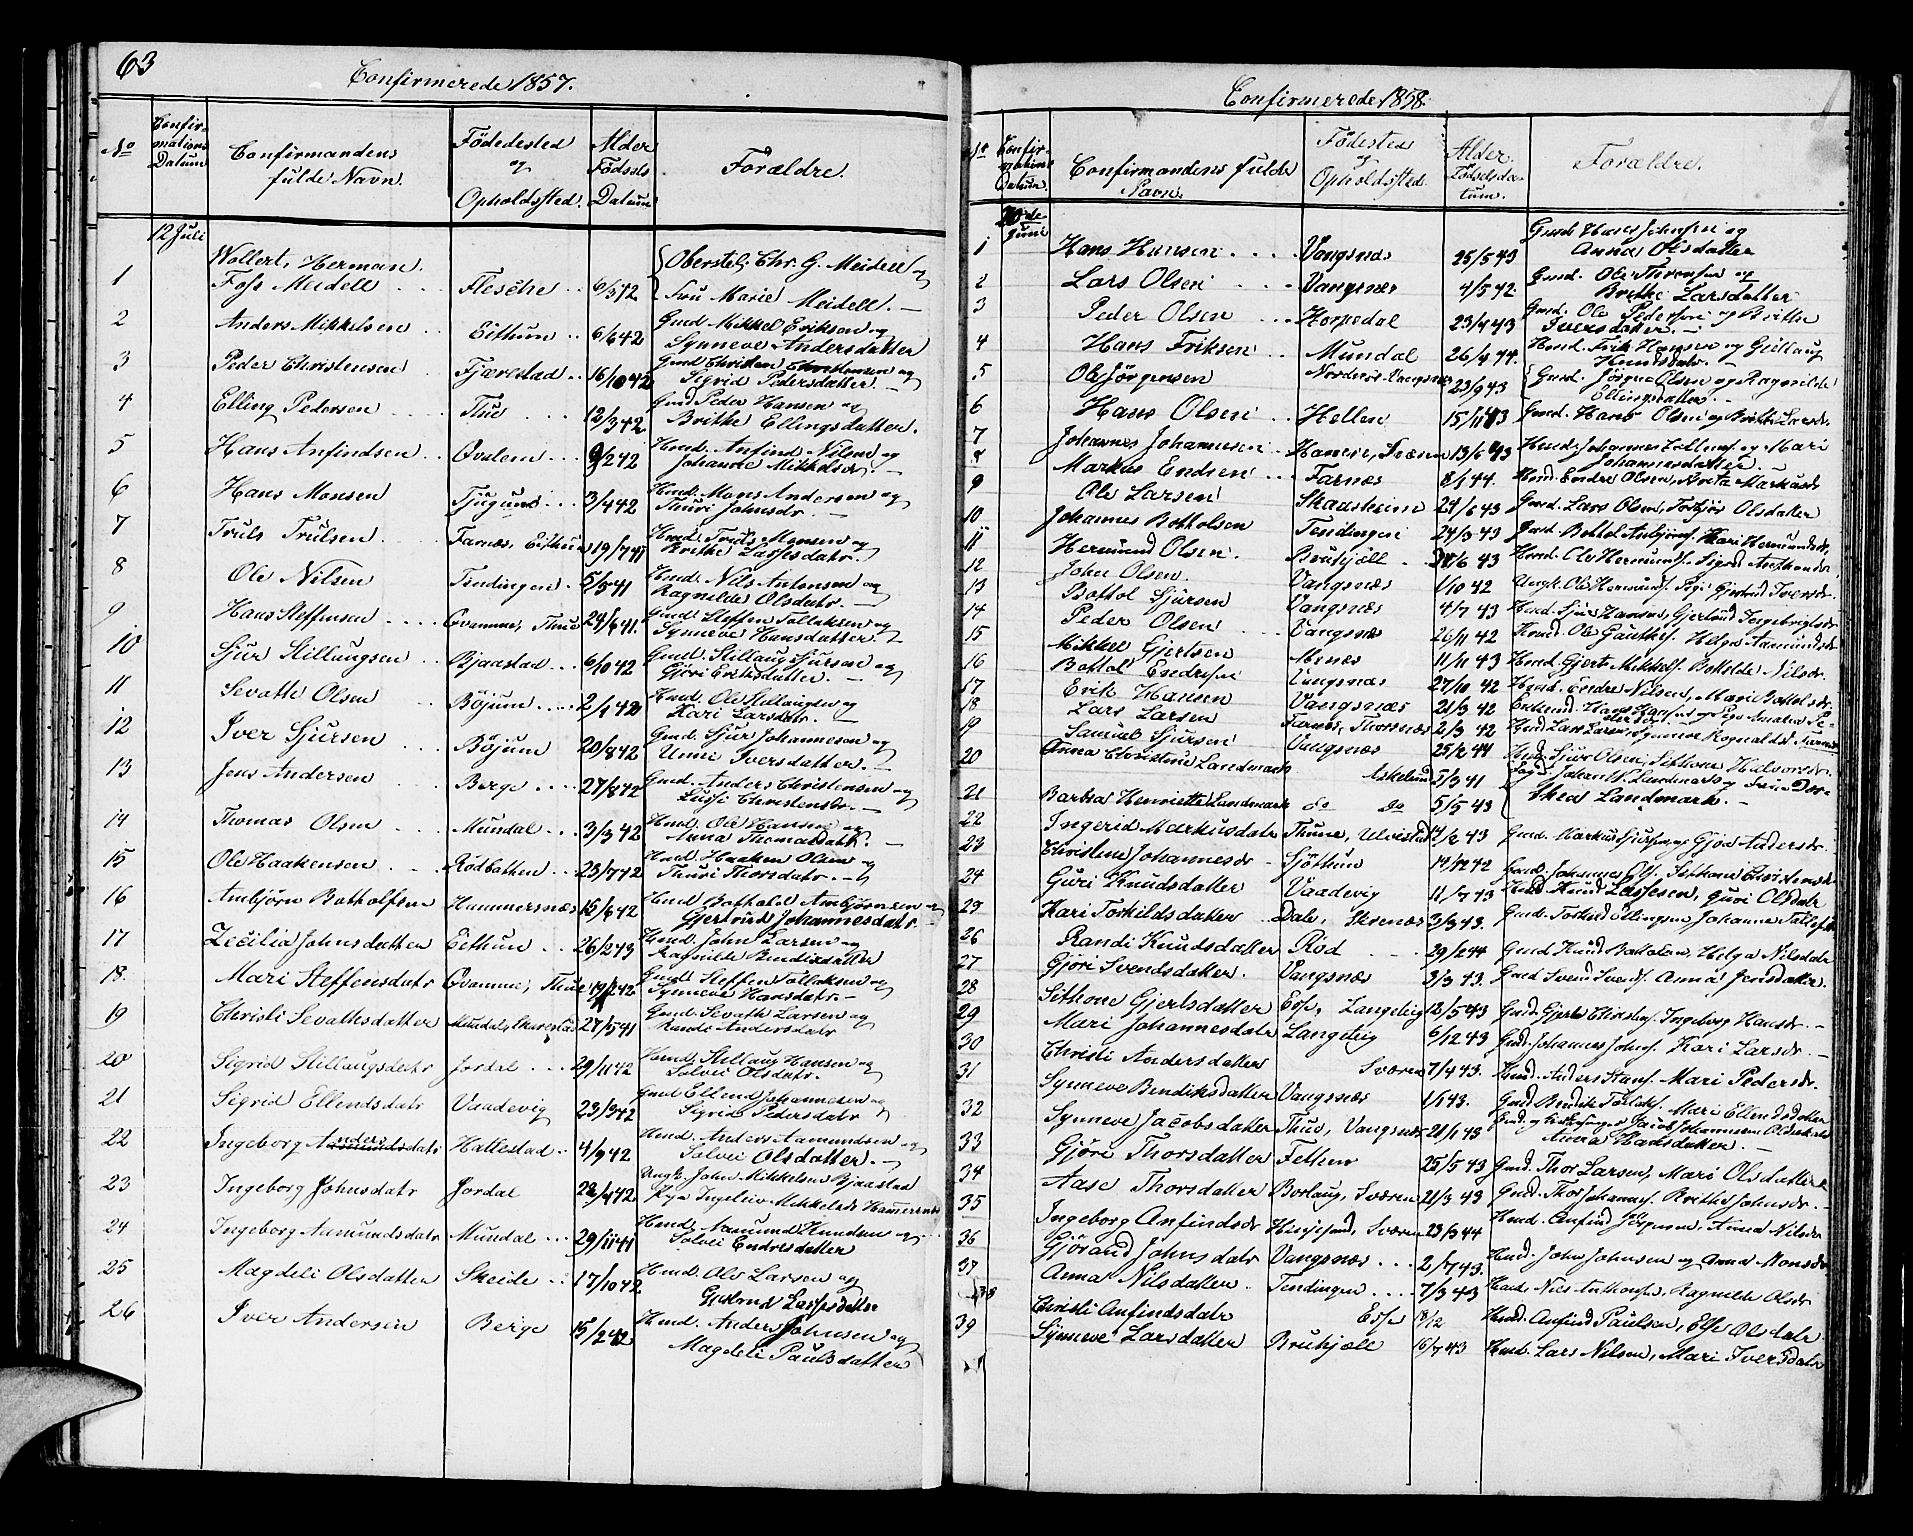 63
Confirmerede 1857.
No
Confirmations Datum
Confirmandens fulde Navn.
Födested og Opholdssted.
Alder Födsels Datum
Forældre.
12 Juli
1 Wollert, Herman Foss Meidell Flesche 6/3 42 Oberstlj. Chr. G. Meidell og Fru Marie Meidell.
2 Anders Mikkelsen Eithun 6/6 42 Gmd Mikkel Eriksen og Synneve Andersdatter
3 Peder Christensen Tjærestad 16/10 42 Gmd Christen Christensen og Sigrid Pedersdatter
4 Elling Pedersen Thue 12/3 42 Gmd Peder Hansen og Brithe Ellingsdatter.
5 Hans Anfindsen Qvalem 9/2 42 Hmd. Anfind Nilsen og Johanne Mikkelsdr
6 Hans Monsen Tjugum 3/4 42 Hmd. Mons Andersen og Thuri Johnsdr
7 Truls Trulsen Farnæs, Eithun 19/7 41 Hmd. Truls Monsen og Brithe Lassesdatr.
8 Ole Nilsen Tendingen 5/5 41 Hmd. Nils Antonsen og Ragnilde Olsdatr.
9 Hans Steffensen Qvamme, Thue 29/6 41. Gmd. Steffen Tollaksen og Synneve Hansdatter
10 Sjur Stillungsen Bjaastad 6/10 42 Gmd. Stillaug Sjursen og Gjöri Eriksdatter.
11 Sevath Olsen Böjum 2/1 42 Hmd. Ole Stillaugsen og Kari Larsdatr.
12 Iver Sjursen Böjum 20/8 42 Gmd. Sjur Johannesen og Unni Iversdatter.
13 Jens Andersen Berge 27/8 42 Gmd. Anders Christensen og Lussi Christensdr.
14 Thomas Olsen Mundal 3/3 42 Hmd. Ole Hansen og Anna Thomasdatr.
15 Ole Haakensen Rödbatten 23/7 42 Hmd. Haaken Olsen og Thuri Thorsdatr.
16 Ambjörn Botholfsen Hammersnæs 15/6 42 Hmd Bothold Ambjörnsen og Gjertrud Johannesdatr.
17 Zecilia Johnsdatter Eithun 26/2 43 Hmd. John Larsen og Ragnilde Bendixdatter
18 Mari Steffensdatr Qvamme, Thue 19/2 42 Gmd Steffen Tollaksen og Synneve Hansdatr.
19 Christi Sevathsdatter Mundal, 27/5 41 Gmd. Sevath Larsen og Randi Andersdatr
20 Sigrid Stillaugsdatr Jordal 29/11 42 Hmd. Stillaug Hansen og Solvei Olsdatr.
21 Sigrid Ellendsdatr Vaadevig 23/3 42 Gmd Ellend Johannesen og Sigrid Pedersdatr
22 Ingeborg Andersdatr Hallestad 4/9 42 Hmd. Anders Aamundsen og Solvei Olsdatter.
23 Ingeborg Johnsdatr Jordal 28/4 42. Ungk. John Mikkelsen Bjaastad Pige Ingeleiv Mikkelsdr Hamersnæs
24 Ingeborg Aamundsdatr Mundal 29/11 41 Hmd. Aamund Knudsen og Solvei Endresdatter
25 Magdeli Olsdatter Skeide 17/10 42 Hmd. Ole Larsen og Gjertrud Lassesdatter
26 Iver Andersen Berge 15/2 42 Hmd. Anders Johnsen og Magdeli Paulsdatter
Confirmerede 1858.
No
Confirmations Datum.
Confirmandens fulde Navn.
Födested og Opholdssted.
Alder. Födselsdatum.
Forældre.
20de Juni
1 Hans Hansen Vangsnæs 25/5 43 Gmd Hans Johnsen og Anna Olsdatter
2 Lars Olsen Vangsnæs 4/5 42 Gmd. Ole Iversen og Brithe Larsdatter
3 Peder Olsen Horpedal 23/4 43 Gmd. Ole Pedersen og Brithe Iversdatter.
4 Hans Eriksen Mundal 26/4 44. Hmd. Erik Hansen og Gjellaug Knudsdatr.
5 Ole Jörgensen Vangsnæs 23/9 43 Gmd. Jörgen Olsen og Ragnilde Ellingsdatter.
6 Hans Olsen Hellen 15/11 43 Gmd. Hans Olsen og Brithe Larsdr.
7 Johannes Johannesen Hamre, Sværen 13/6 43 Hmd. Johannes og Mari Johannesdatter.
8 Markus Endsen Farnæs 8/1 44. Hmd. Endre Olsen, Brita Markusdr
9 Ole Larsen Skaasheim 24/6 43 Gmd. Lars Olsen, Torbjör Olsdatter
10 Johannes Botholsen Tendingen 24/3 43 Gmd. Bothol Ambjörnsen Kari Hermundsdr,
11 Hermund Olsen. Bruhjell 6 43 Hmd. Ole Hermunds. Sigrid
12 John Olsen. Vangsnæs 1/10 42 Ungk. Ole Hermunds. Pige Gjertrud Iversdr.
13 Bottol Sjursen Vangsnæs 4/7 43 Hmd. Sjur Hansen, Gjertrud Ingebrigtsdr
14 Peder Olsen Vangsnæs 26/11 42 Hmd. Ole Gauthes. Helga Aamundsdr
15 Mikkel Gjertsen Menæs 11/11 43 Hmd. Gjert Mikkels. Bothilde Nilsdr.
16 Bottol Endresen Vangsnæs 27/10 42 Hmd. Endre Nilsen, Mari Bottolsdr.
17 Erik Hansen Vangsnæs 21/3 42 Enkemd. Hans
18 Lars Larsen Farnæs, Thorsnæs 2/3 42 Hmd Lars Larsen, Synneve Rognaldsdr
19 Samuel Sjursen Vangsnæs 25/2 44 Hmd Sjur Olsen, Sithone Halvorsdr.
20 Anna Christine Landmark Askelund 5/3 41 Fogd. Johan N. Landmark og Frue Dorthea Landmark.
21 Barbra Henriette Landmark do do 5/5 43
22 Ingerid Markusdatr Thune, Ulvestad 14/2 43 Gmd. Markus og Gjöa Andersdr.
23 Christine Johannesdr Sjöthun 14/12 42 Gmd. Johannes Ols. Sithone Christensdr
24 Guri Knudsdatter Vaadevig 11/7 43 Hmd. Knud Lassesen, Guri Olsdatr
25 Kari Torkildsdatter Dale, 3/3 43. Gmd. Torkild Ellingsen, Johanne
26 Randi Knudsdatter Röd 29/2 44 Gmd Knud Bottolsen, Helga Nilsdatr
27 Gjöri Svendsdatter. Vangsnæs 3/3 43. Gmd Svend Svends. Anna Jensdatter.
28 Sithone Gjertsdatter Esse, Langeteig 12/5 43 Gmd. Gjert Christens. Ingeborg Hansdr.
29 Mari Johannesdatr Langeteig 6/12 43 Gmd. Johannes Johns. Kari Larsdr.
30 Christi Andersdatter Sværen 7/4 43. Hmd. Anders Hans. Mari Pedersdr.
31 Synneve Bendiksdatter Vangsnæs 1/6 43. Gmd Bendik Mari Ellendsdatter
32 Synneve Jacobsdatter Thue, Vangsnæs 21/1 43 Gmd. og Jacob Johannesen Anna Hansdatter.
33 Gjöri Thorsdatter Fethen 25/5 43 Gmd. Thor Larsen, Mari Olsdatter
34 Aase Thorsdatter Borlaug, Sværen 21/3 43 Gmd. Thor Johannes. Brithe Johnsdr.
35 Ingeborg Anfindsdr Sværen 23/3 44 Hmd. Anfind Jörgensen, Anna Nilsdr
36 Gjöraud Johnsdatr Vangsnæs 2/7 43. Hmd. John Johnsen og Anna Monsdr
37 Anna Nilsdatter. Tendingen 7/3 43 Hmd. Nils Anthons. Ragnilde Olsdr
38 Christi Anfindsdatr Esse 18/12 Hmd. Anfind Paulsen, Else Olsdatr
39 Synneve Larsdatter Bruhjell 16/7 43 Hmd. Lars Nilsen, Mari Iversdatr